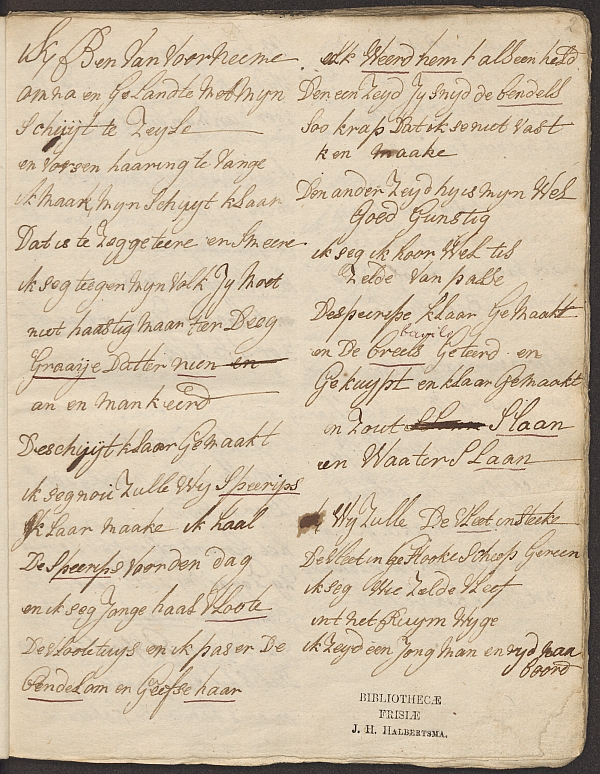 Ik Ben Van Voor Neeme
om na en Gelandte Met Mijn
Schuijt te Zeijle
en Varsen haaring te Vange
ik Maak Mijn Schuijt klaar
Dat is te Zegge teere en Smeere
ik seg teegen Mijn Volk Jy Moet
niet haastig maar ter Deeg
Graaije Datter nien en
an en mankeerd
De schuijt klaar Gemaakt
ik seg nou Zulle Wij Speerips
klaar maake ik haal
De Speerips Voor den dag
en ik seg Jonge haal Vloote
De Vloote tuijs en ik pas er De
bendels om en Geefse haar
elk Weerd hem t als een held
Den een Zeyd Jy snyd de bendels
Soo krap Dat ik se niet Vast
ken maake
Den ander Zeyd hy is mijn Wel
Goed Gunstig
ik seg ik hoor Wel tis
Zelde Van passe
De speeripe klaar Gemaakt
en De breels Geteerd en
Gekuypt en klaar Gemaakt
in Zout Slaan
en Waater Slaan
Wij Zulle De Vleet in steeke
De Vleet in Scheep Gereen
ik seg Wie Zelde Vleet
int het Ruym Wyge
ik Zeyd een Jong Man en
boord
BIBLIOTHECÆ
FRISIÆ
J. H. HALBERTSMA.